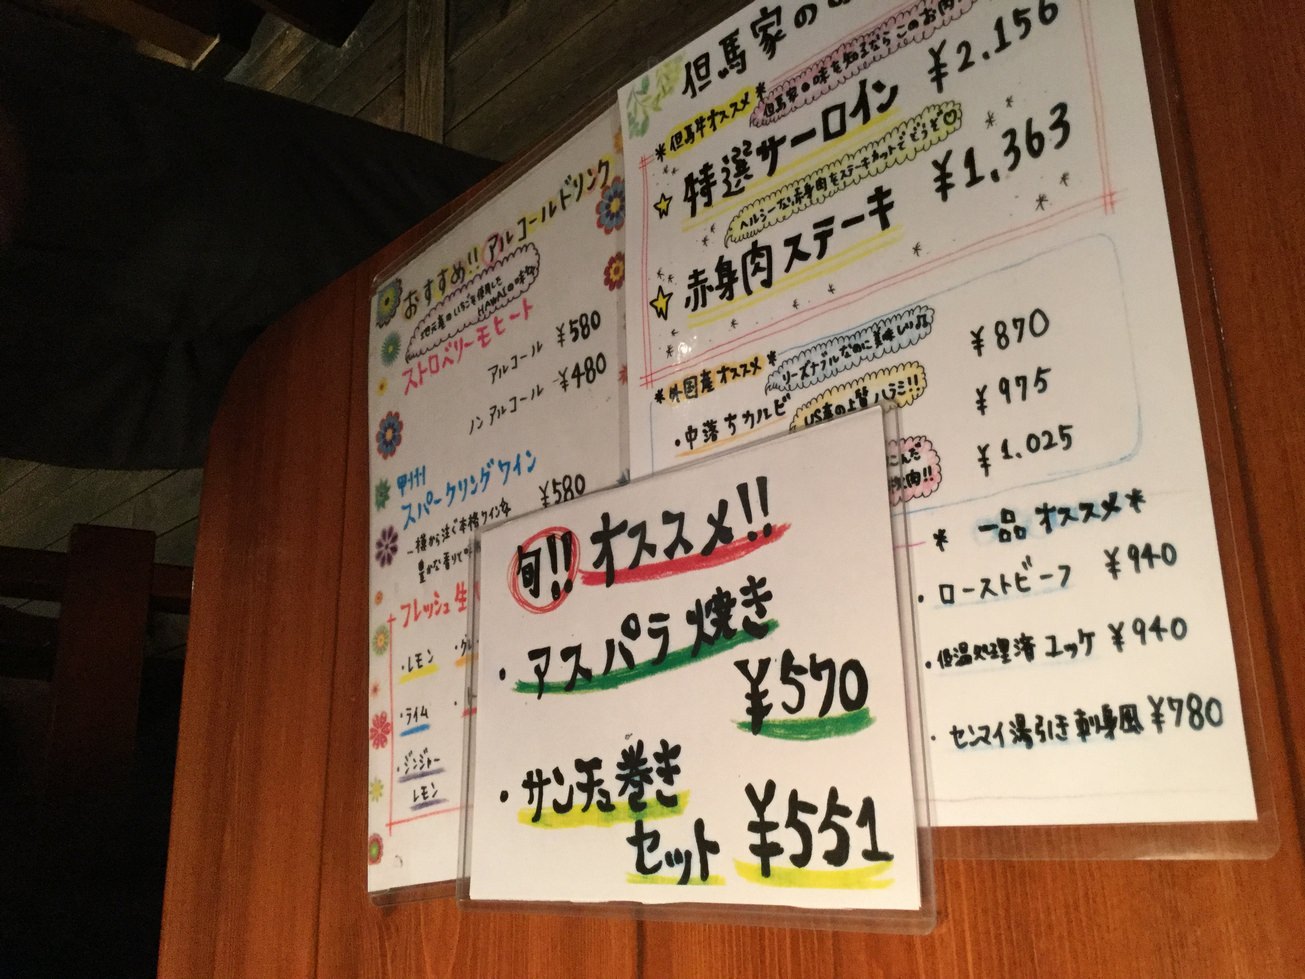 おすすめ!! アルコールドリンク
地元産のいちごを使用した
HAWAIの味
ストロベリーモヒート
アルコール ¥580
ノンアルコール ¥480
甲州
スパークリングワイン
¥580
一樽から注ぐ本格ワイン
豊かな香りで
フレッシュ生
・レモン
・グレ
・ライム
・ジンジャー
レモン
但馬家の
*但馬牛オススメ*
但馬家の味を知るならこのお肉
☆特選サーロイン ¥2.156
ヘルシーな赤身肉をステーキカットでどうぞ♡
☆赤身肉ステーキ ¥1,363
*外国産オススメ*
リーズナブルなのに美味しい♫
・中落ちカルビ ¥870
US産の上質ハラミ!!
¥975
¥1.025
* 一品 オススメ*
・ローストビーフ ¥940
・低温処理済 ユッケ ¥940
・センマイ湯引き刺身風 ¥780
旬!! オススメ!!
・アスパラ焼き
¥570
・サンチュ巻き
セット ¥551